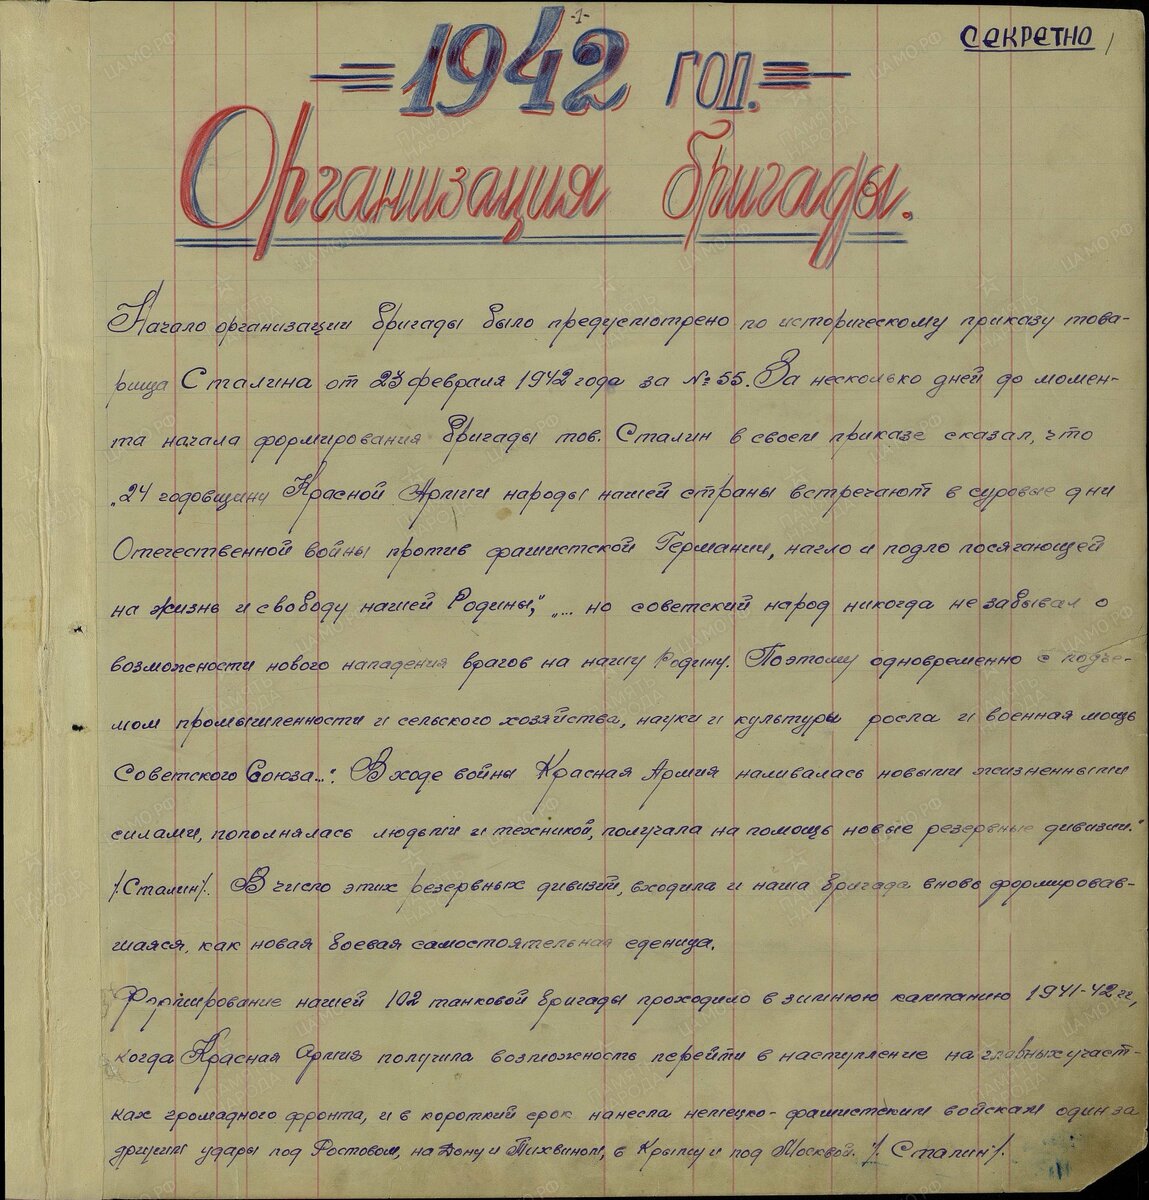 -1-
СЕКРЕТНО 1
1942 ГОД.
Организация бригады.
Начало организации бригады было предусмотрено по историческому приказу това-
рища Сталина от 23 февраля 1942 года за № 55. За несколько дней до момен-
та начала формирования бригады тов. Сталин в своем приказе сказал, что
„24 годовщину Красной Армии народы нашей страны встречают в суровые дни
Отечественной войны против фашистской Германии, нагло и подло посягающей
на жизнь и свободу нашей Родины", „... но советский народ никогда не забывал о
возможности нового нападения врагов на нашу Родину. Поэтому одновременно с подъе-
мом промышленности и сельского хозяйства, науки и культуры росла и военная мощь
Советского Союза...". В ходе войны Красная Армия наливалась новыми жизненными
силами, пополнялась людьми и техникой, получала на помощь новые резервные дивизии."
/Сталин/. В число этих резервных дивизий, входила и наша бригада вновь формировав-
шаяся, как новая боевая самостоятельная еденица.
Формирование нашей 102 танковой бригады проходило в зимнюю кампанию 1941-42 гг,
когда Красная Армия получила возможность перейти в наступление на главных участ-
ках громадного фронта, и в короткий срок нанесла немецко-фашистским войскам один за
другим удары под Ростовом, на Дону и Тихвином, в Крыму и под Москвой. /Сталин/.
ПАМЯТЬ НАРОДА
ЦА МО РФ